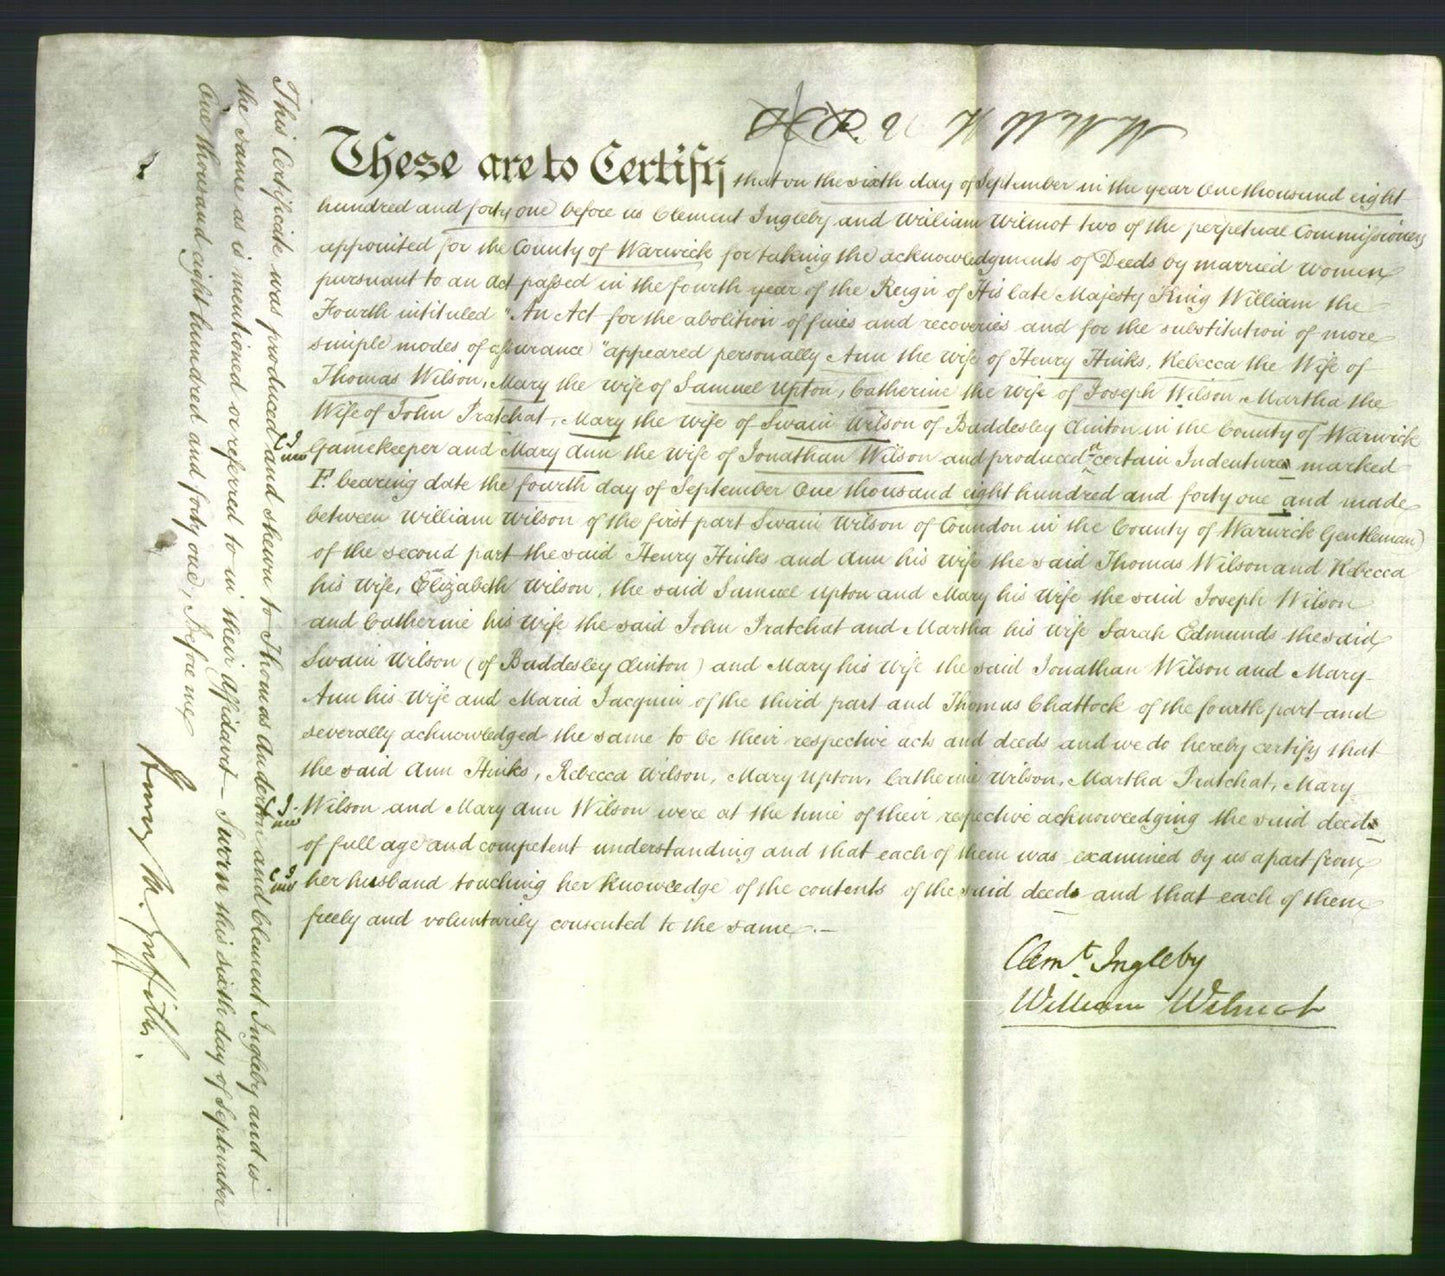 These are to Certify that on the sixth day of September in the year One thousand eight
hundred and forty one before us Clement Ingleby and William Wilmot two of the perpetual Commissioners
appointed for the County of Warwick for taking the acknowledgments of Deeds by married women
pursuant to an Act passed in the fourth year of the Reign of His late Majesty King William the
Fourth intituled "An Act for the abolition of fines and recoveries and for the substitution of more
simple modes of assurance" appeared personally Ann the wife of Henry Hinks, Rebecca the Wife of
Thomas Wilson, Mary the wife of Samuel Upton, Catherine the wife of Joseph Wilson, Martha the
Wife of John Pratchat, Mary the wife of Swain Wilson of Baddesley Clinton in the County of Warwick
Gamekeeper and Mary Ann the wife of Jonathan Wilson and produced a certain Indenture marked
F. bearing date the fourth day of September One thousand eight hundred and forty one and made
between William Wilson of the first part Swain Wilson of Coundon in the County of Warwick Gentleman
of the second part the said Henry Hinks and Ann his Wife the said Thomas Wilson and Rebecca
his Wife, Elizabeth Wilson, the said Samuel Upton and Mary his Wife the said Joseph Wilson
and Catherine his Wife the said John Pratchat and Martha his Wife Sarah Edmunds the said
Swain Wilson (of Baddesley Clinton) and Mary his Wife the said Jonathan Wilson and Mary
Ann his Wife and Maria Jacquin of the third part and Thomas Chattock of the fourth part and
severally acknowledged the same to be their respective acts and deeds and we do hereby certify that
the said Ann Hinks, Rebecca Wilson, Mary Upton, Catherine Wilson, Martha Pratchat, Mary
Wilson and Mary Ann Wilson were at the time of their respective acknowledging the said deed
of full age and competent understanding and that each of them was examined by us apart from
her husband touching her knowledge of the contents of the said deed and that each of them
freely and voluntarily consented to the same.—
Clemt. Ingleby
William Wilmot
This Certificate was produced and shewn to Thomas Auderton and Clement Ingleby and is
the same as is mentioned or referred to in their Affidavit – Sworn this sixth day of September
One thousand eight hundred and forty one, Before me
Henry M. Griffiths.
C I
WW
C I.
WW
C I
WW